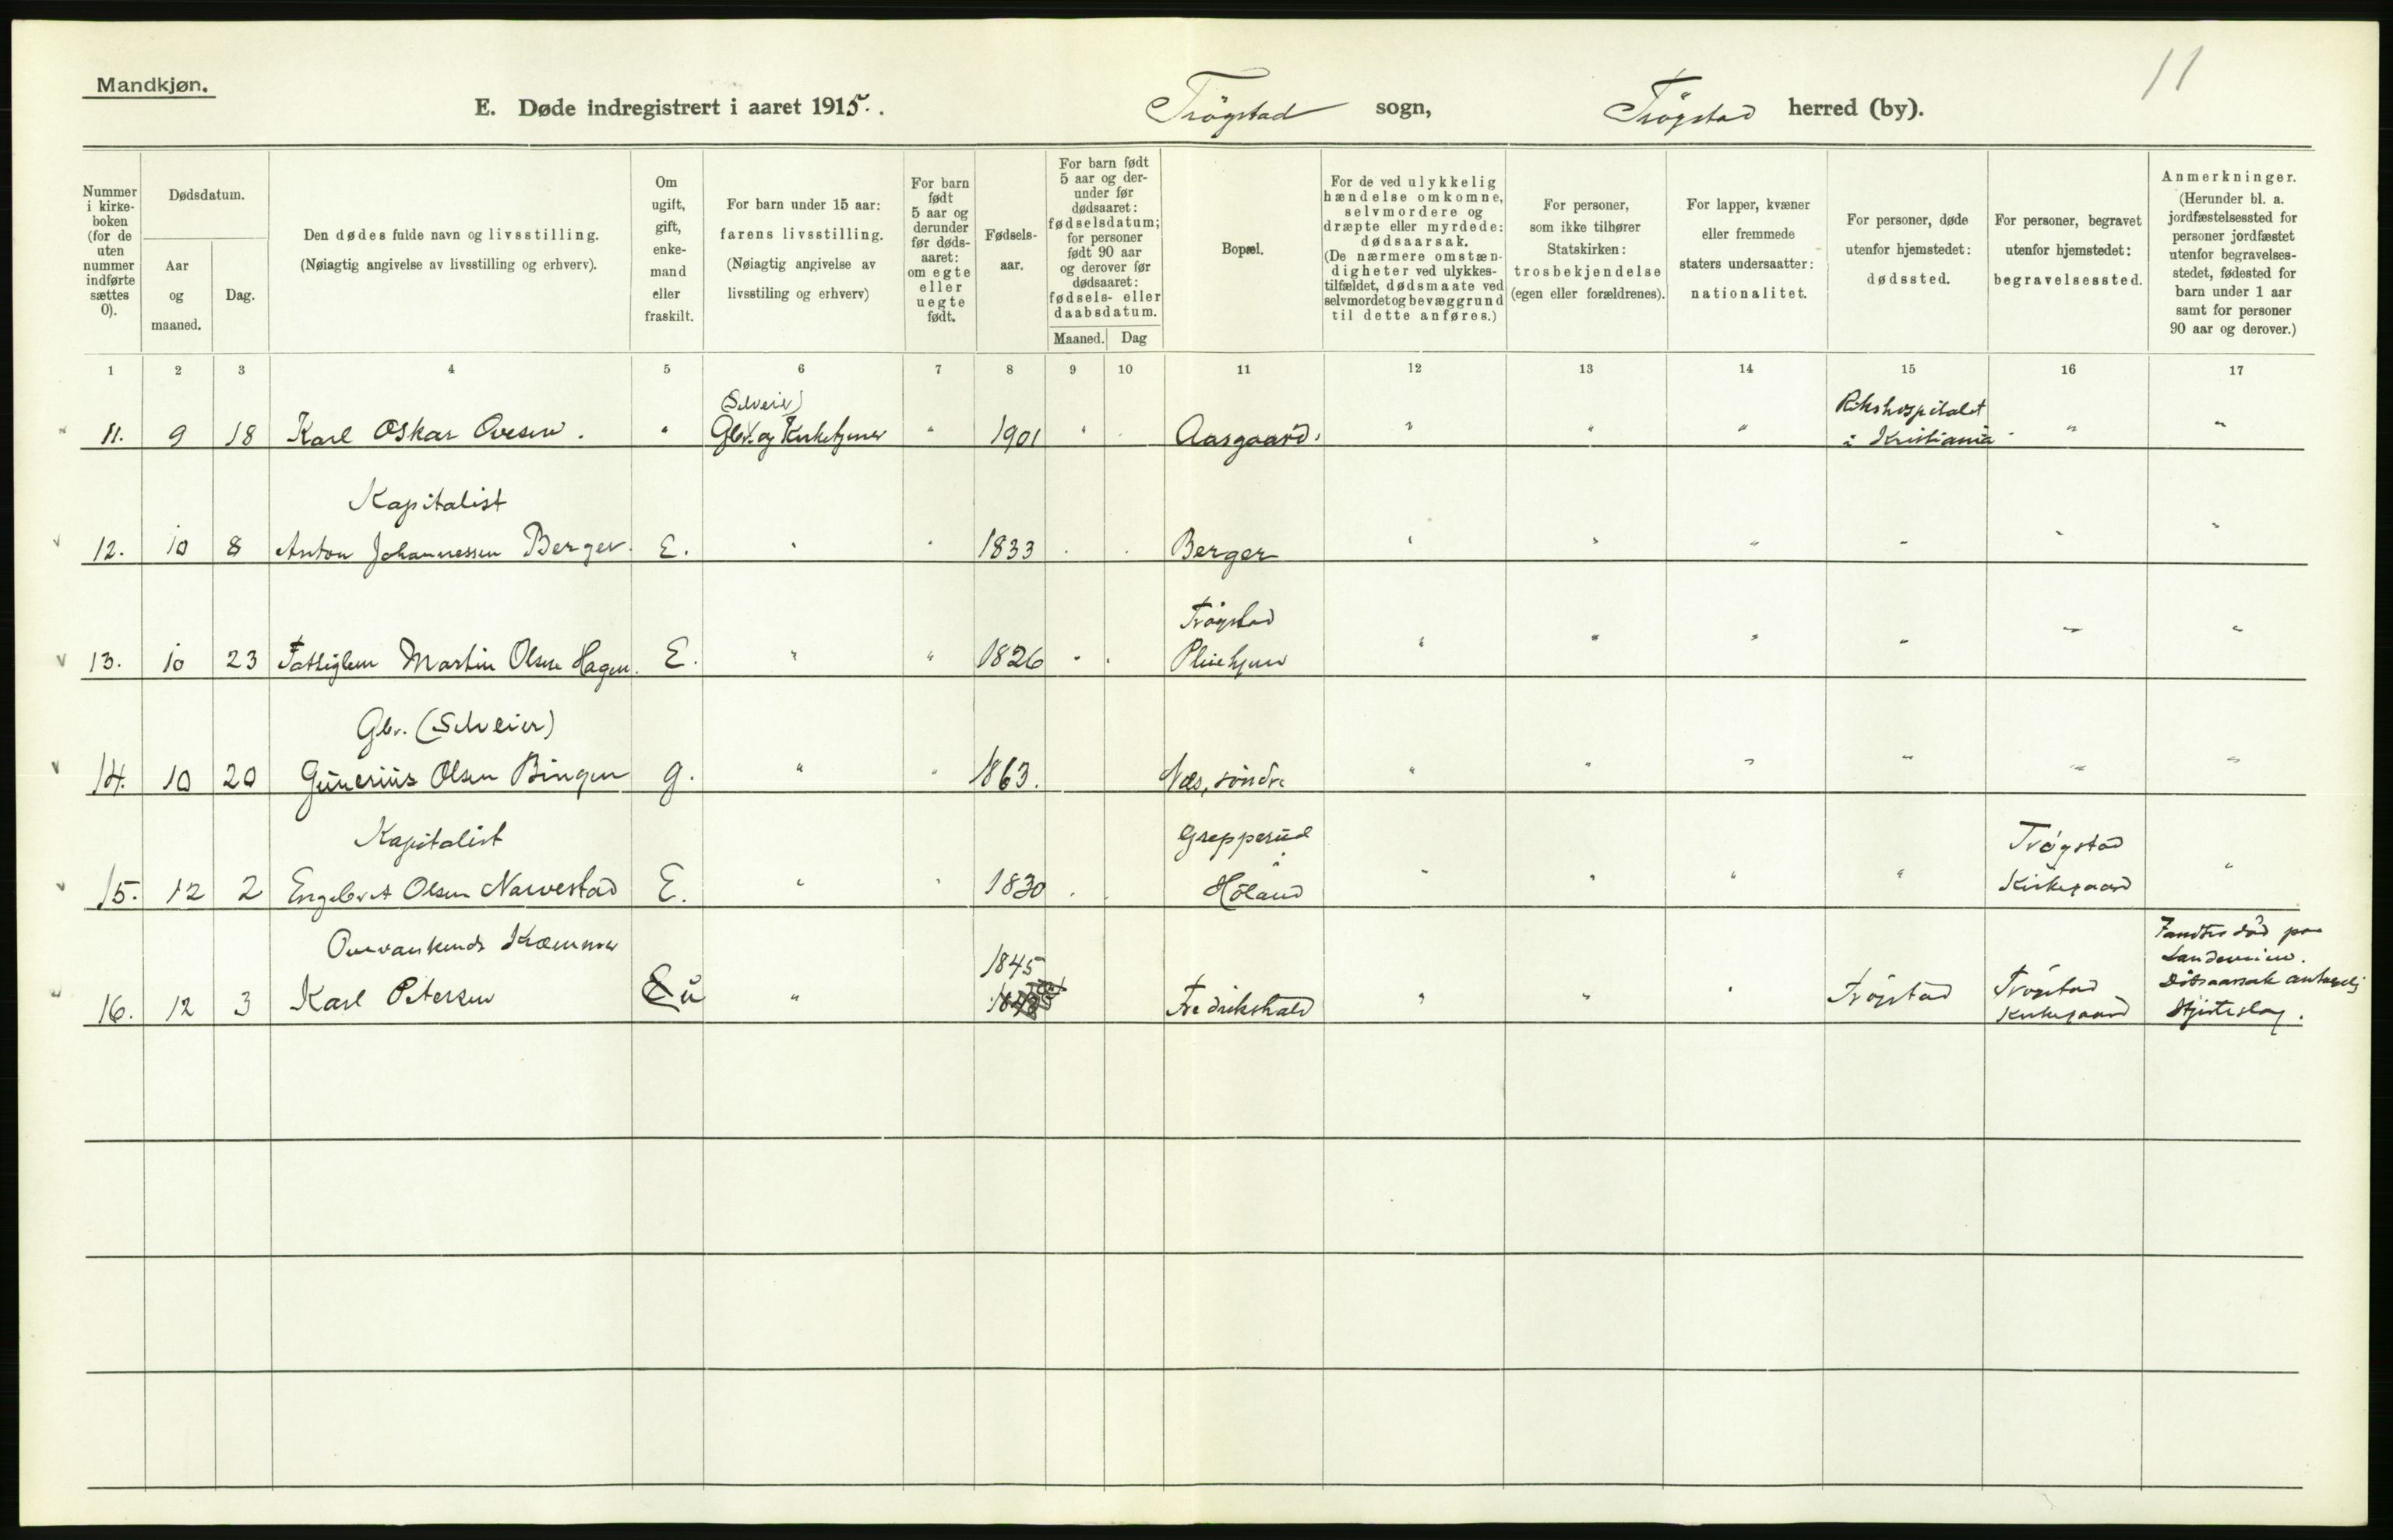 Mandkjøn.
11
E. Døde indregistrert i aaret 1915. Trögstad sogn, Trögstad herred (by).
Nummer i kirke-boken (for de uten nummer indførte sættes 0).
Dødsdatum.
Aar og maaned.
Dag.
Den dødes fulde navn og livsstilling.
(Nøiagtig angivelse av livsstilling og erhverv).
Om ugift, gift, enke-mand eller fraskilt.
For barn under 15 aar: farens livsstilling.
(Nøiagtig angivelse av livsstiling og erhverv)
For barn født 5 aar og derunder før døds-aaret: om egte eller uegte født.
Fødsels-aar.
For barn født 5 aar og der-under før dødsaaret: fødselsdatum; for personer født 90 aar og derover før dødsaaret: fødsels- eller daabsdatum.
Maaned. Dag
Bopæl.
For de ved ulykkelig hændelse omkomne, selvmordere og dræpte eller myrdede: dødsaarsak.
(De nærmere omstæn-digheter ved ulykkes-tilfældet, dødsmaate ved selvmordet og bevæggrund til dette anføres.)
For personer, som ikke tilhører Statskirken: trosbekjendelse (egen eller forældrenes).
For lapper, kvæner eller fremmede staters undersaatter: nationalitet.
For personer, døde utenfor hjemstedet: dødssted.
For personer, begravet utenfor hjemstedet: begravelsessted.
Anmerkninger.
(Herunder bl. a. jordfæstelsessted for personer jordfæstet utenfor begravelses-stedet, fødested for barn under 1 aar samt for personer 90 aar og derover.)
1 2 3 4 5 6 7 8 9 10 11 12 13 14 15 16 17
(Selveier) Rikshospitalet
11. 9 18 Karl Oskar Ovesen. " Gbr. og Kirketjener " 1901 " Aasgaard. " " " i Kristiania " "
Kapitalist
12. 10 8 Anton Johannessen Berger. E. " " 1833 Berger " " " " " "
Trögstad
13. 10 23 Fattiglem Martin Olsen Hagen. E. " " 1826 Pleiehjem " " " " " "
Gbr. (Selveier)
14. 10 20 Gunerius Olsen Bingen g. " " 1863. Næs, söndre " " " " " "
Kapitalist Grepperud i Trögstad
15. 12 2 Engebret Olsen Narvestad E. " " 1830 Höland " " " " Kirkegaard "
Omvankende Kræmmer 1845 Fandtes död paa Landeveien.
16. 12 3 Karl Petersen u " Fredrikshald " " " Trögstad Trögstad Kirkegaard Dödsaarsak antagelig Hjerteslag.